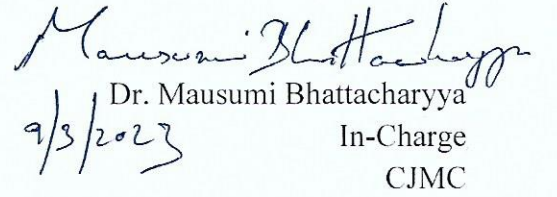 Mausumi Bhattacharyya
Dr. Mausumi Bhattacharyya
9/3/2023
In-Charge
CJMC